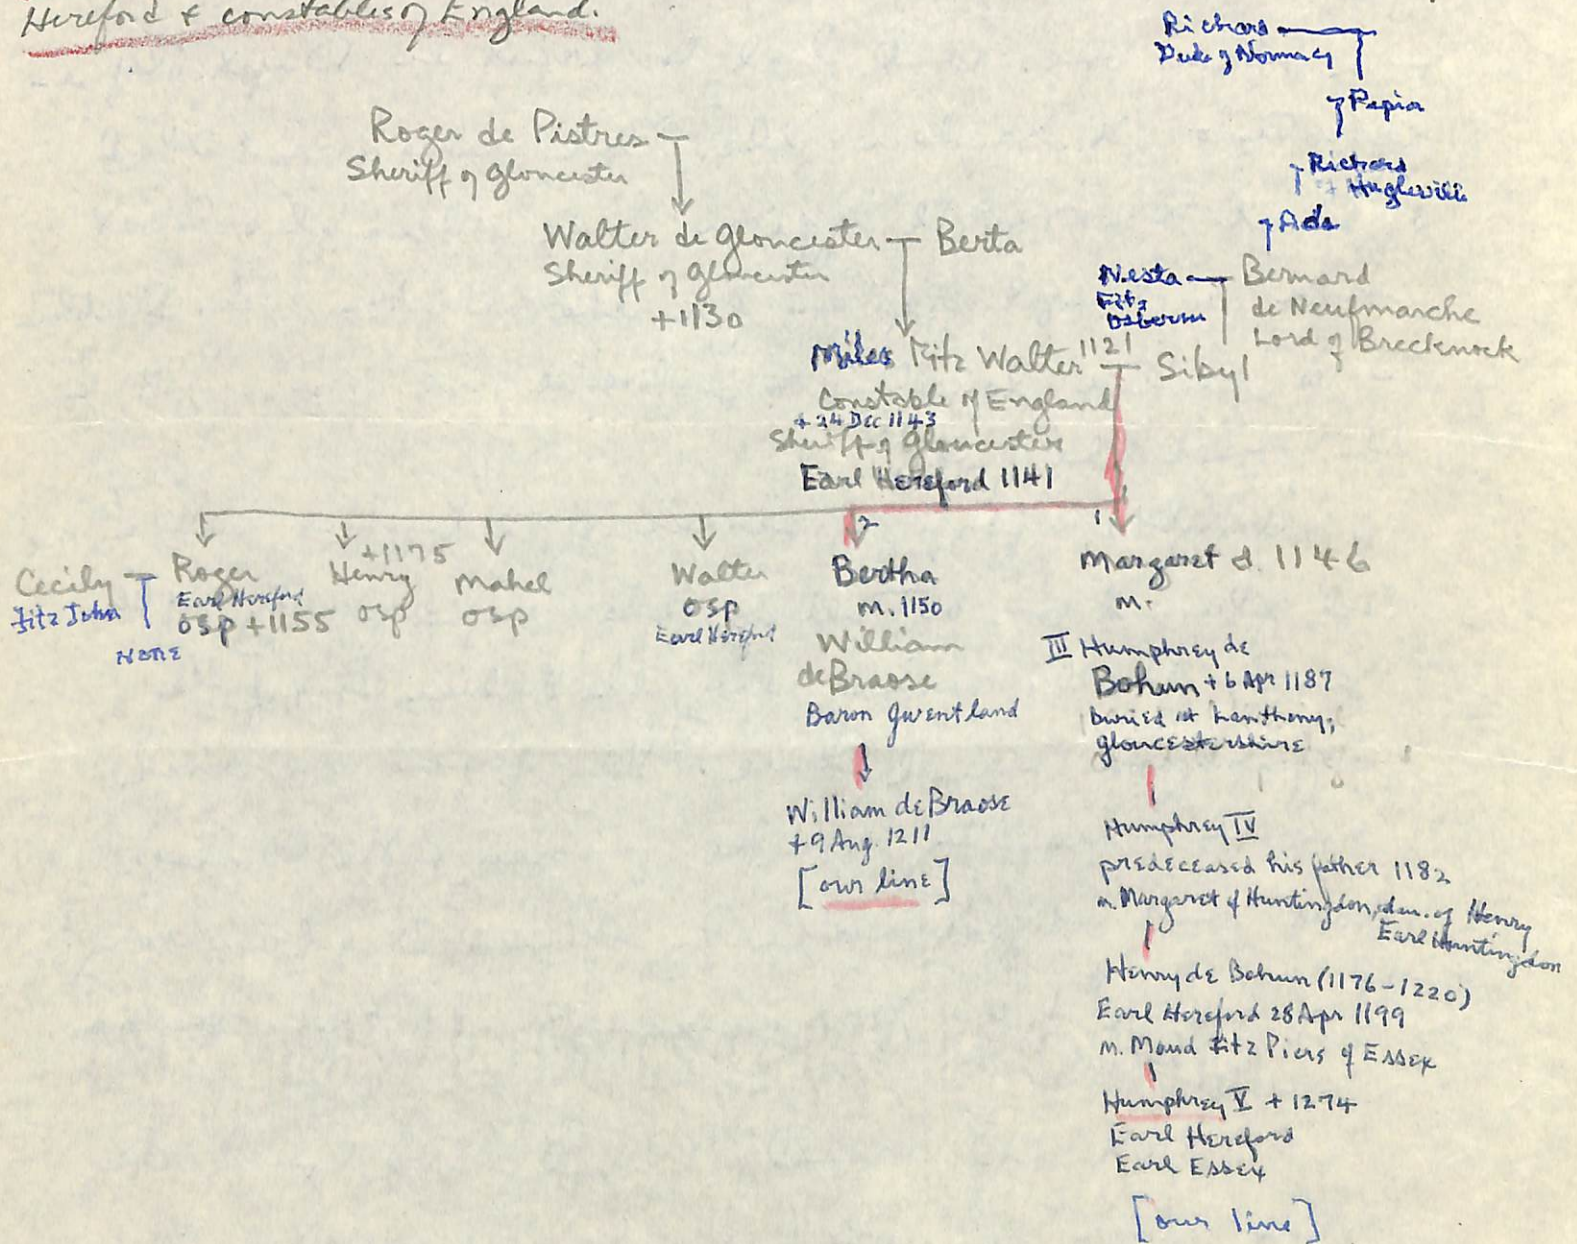 Hereford & constables of England.
Richard
Duke of Normacy
Papia
Richard
Hugleville
Ada
Roger de Pistres
Sheriff of Gloucester
Walter de Gloucester
Berta
Sheriff of Gloucester
+1130
Nesta
Fitz
Osbern
Bernard
de Neufmarche
Lord of Brecknock
Miles Fitz Walter
1121
Sibyl
Constable of England
+ 24 Dec 1143
Sheriff of Gloucester
Earl Hereford 1141
Cecily
Fitz John
NONE
Roger
Earl Hereford
OSP +1155
+1175
Henry
OSP
Mahel
OSP
Walter
OSP
Earl Hereford
2
Bertha
m. 1150
William
de Braose
Baron Gwentland
William de Braose
+ 9 Aug. 1211
[our line]
1
Margaret d. 1146
m.
III Humphrey de
Bohun + 6 Apr 1187
Buried at Lanthony,
Gloucestershire
Humphrey IV
predeceased his father 1182
m. Margaret of Huntingdon, dau. of Henry
Earl Huntingdon
Henry de Bohun (1176-1220)
Earl Hereford 28 Apr 1199
m. Maud Fitz Piers of Essex
Humphrey V + 1274
Earl Hereford
Earl Essex
[our line]